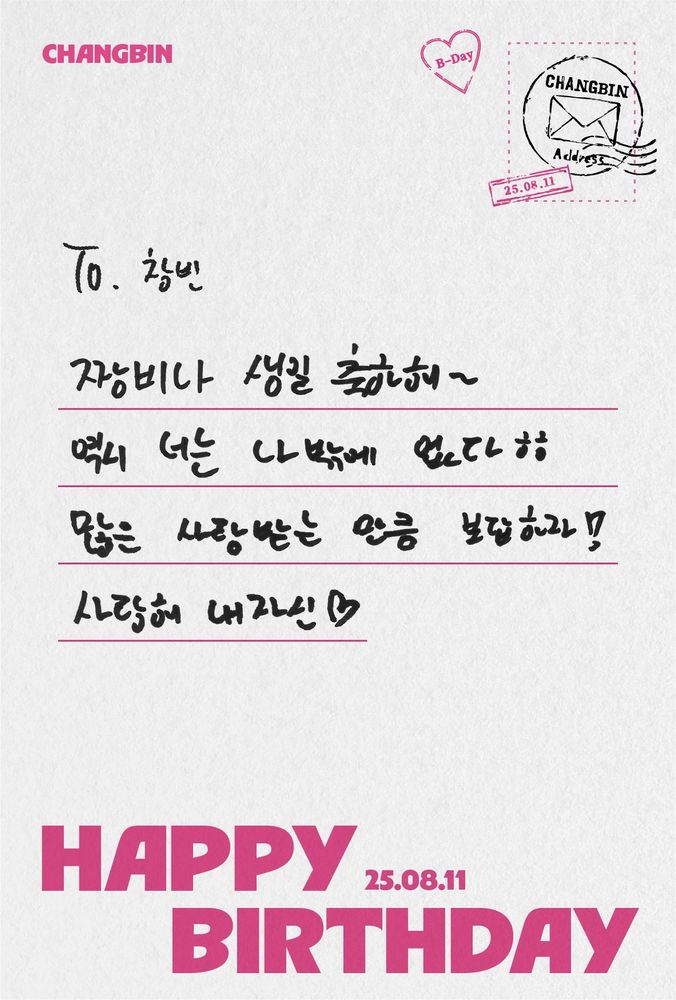 CHANGBIN
B-Day
CHANGBIN
Address
25.08.11
To. 창빈
장비나 생일 축하해~
역시 너는 나밖에 없다 ㅎㅎ
많은 사랑받는 만큼 보답하자!!
사랑해 내자신♡
HAPPY
25.08.11
BIRTHDAY